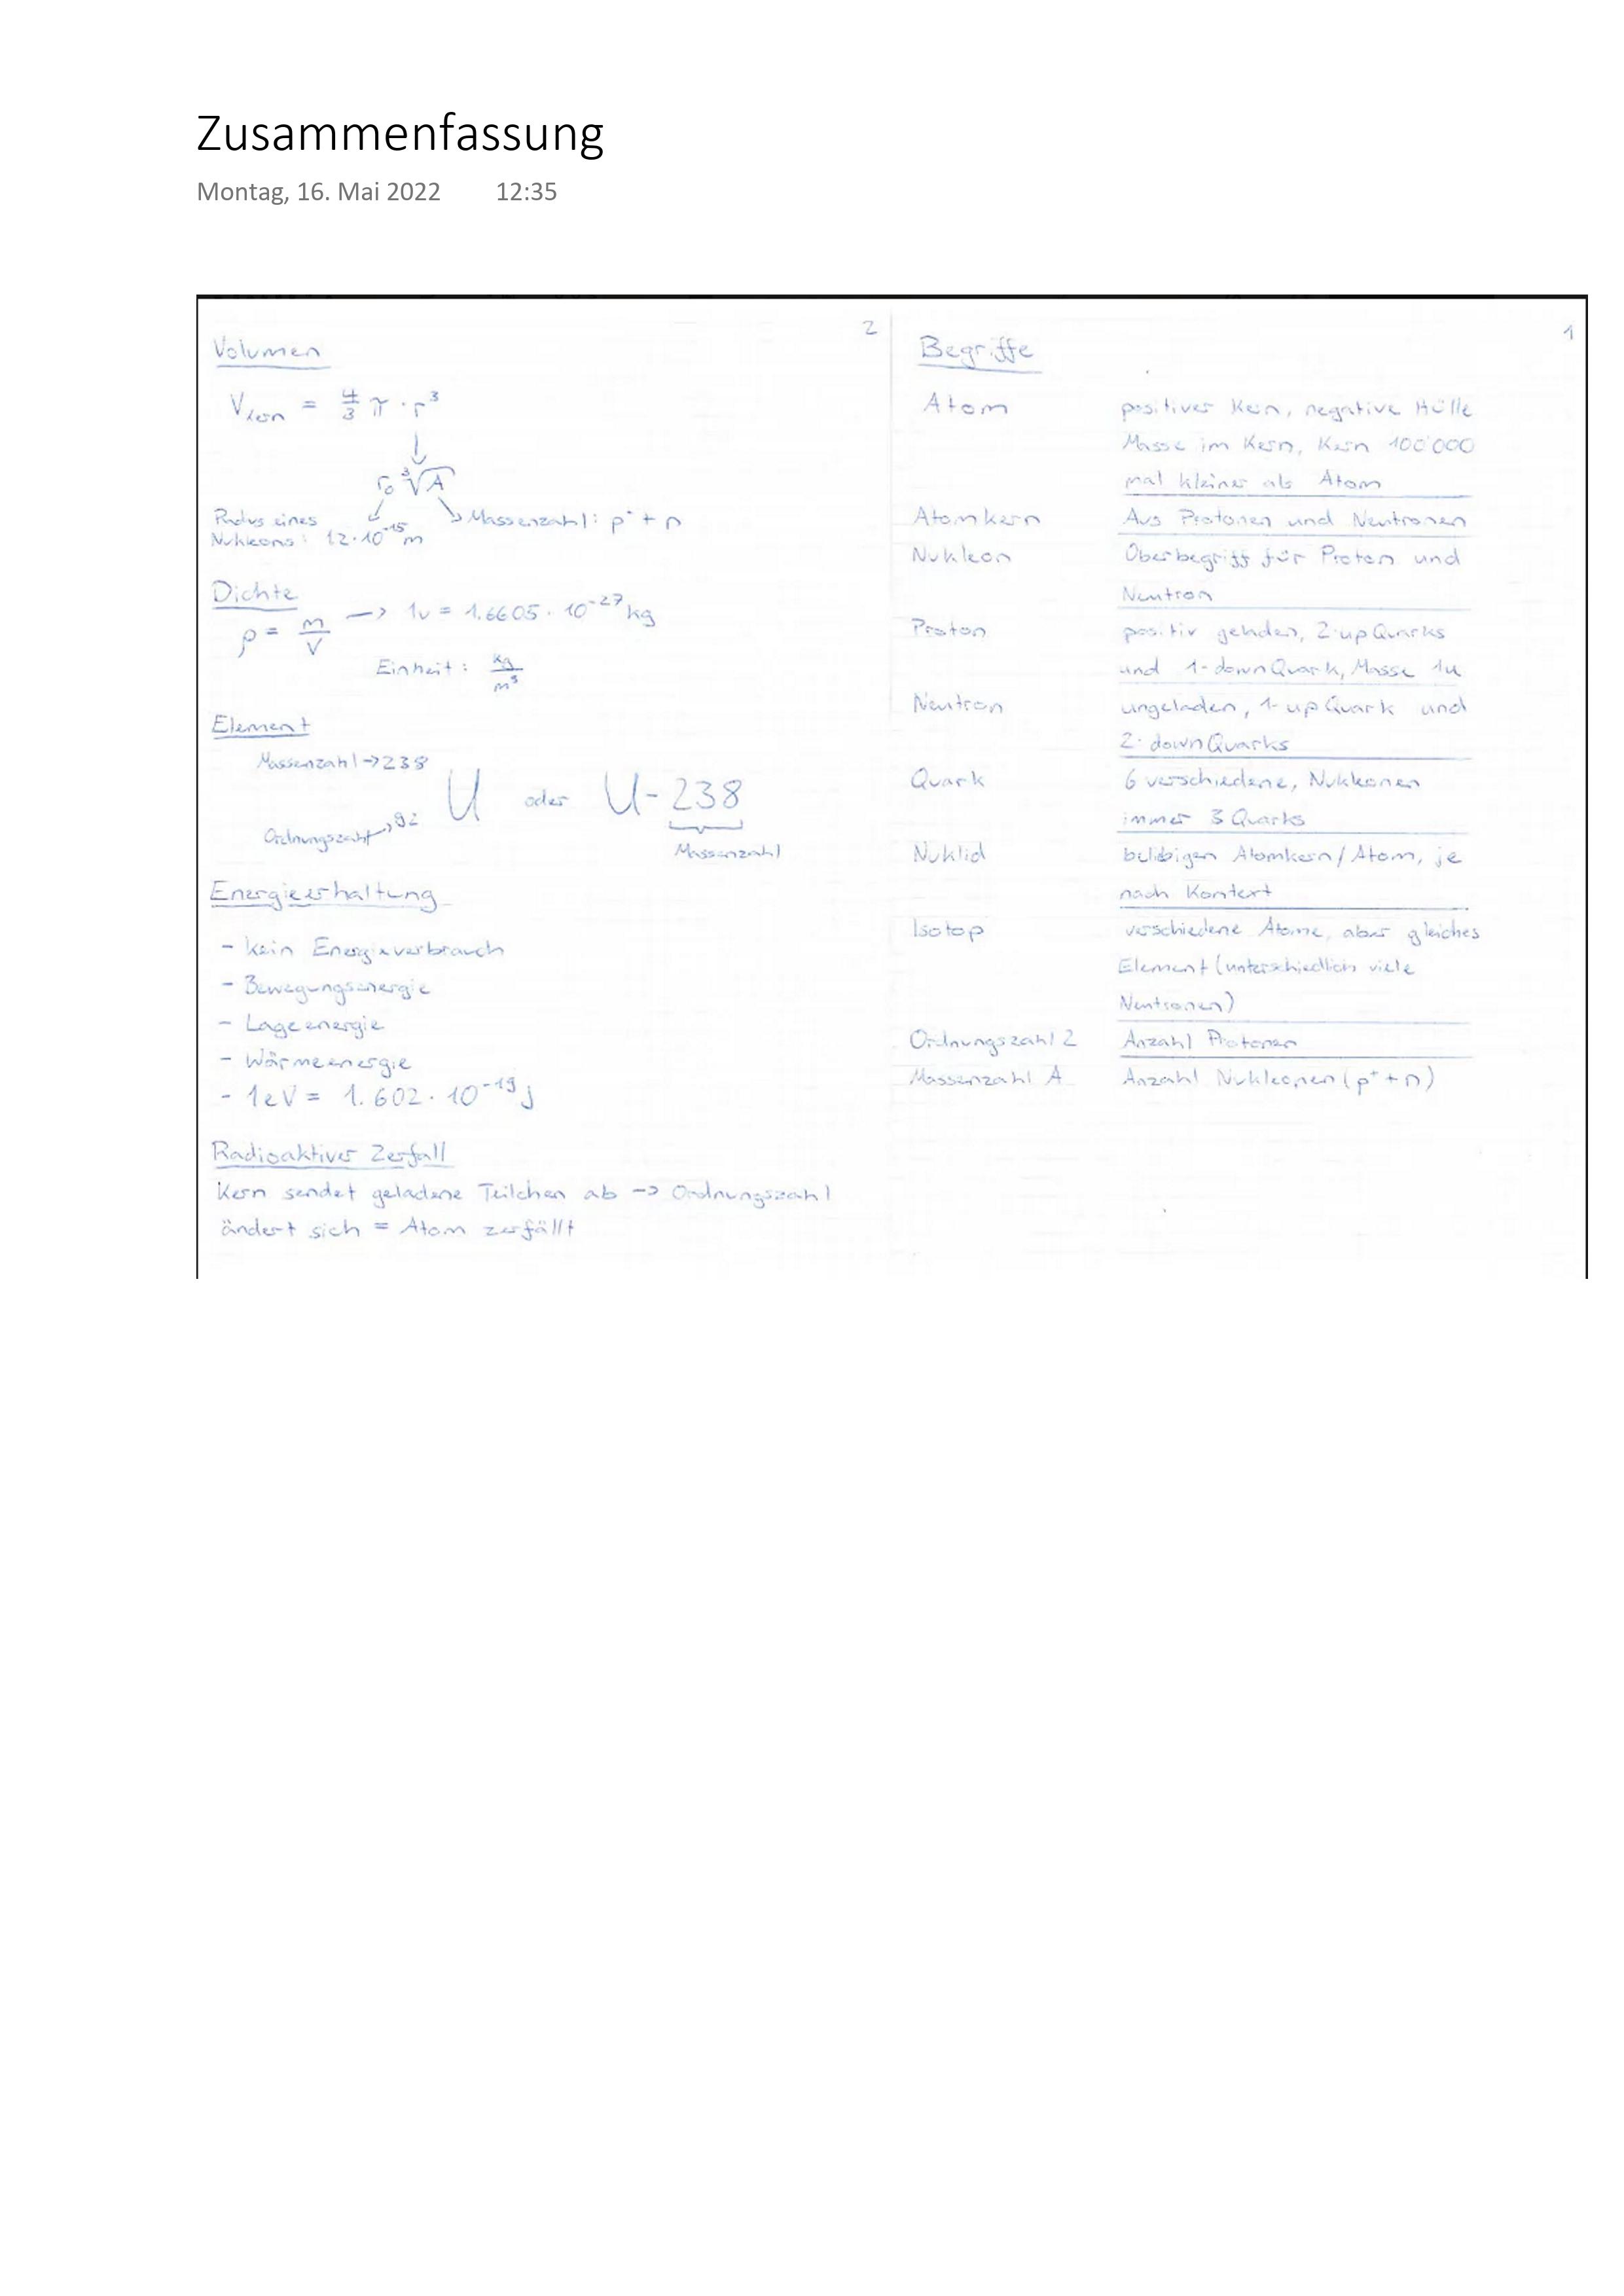 Zusammenfassung
Montag, 16. Mai 2022 12:35
2
Volumen
V_Kern = 4/3 π · r³
r₀ ³√A
Radius eines
Nukleons: 1.2·10⁻¹⁵ m
Massenzahl: p⁺ + n
Dichte
ρ = m/V → 1u = 1.6605 · 10⁻²⁷ kg
Einheit: kg/m³
Element
Massenzahl → 238
U oder U-238
Ordnungszahl → 92
Massenzahl
Energieerhaltung
- kein Energieverbrauch
- Bewegungsenergie
- Lageenergie
- Wärmeenergie
- 1eV = 1.602 · 10⁻¹⁹ j
Radioaktiver Zerfall
Kern sendet geladene Teilchen ab -> Ordnungszahl
ändert sich = Atom zerfällt
1
Begriffe
Atom positiver Kern, negative Hülle
Masse im Kern, Kern 100'000
mal kleiner als Atom
Atomkern Aus Protonen und Neutronen
Nukleon Oberbegriff für Proton und
Neutron
Proton positiv geladen, 2-up Quarks
und 1-down Quark, Masse 1u
Neutron ungeladen, 1-up Quark und
2-down Quarks
Quark 6 verschiedene, Nukleonen
immer 3 Quarks
Nuklid beliebigen Atomkern/Atom, je
nach Kontext
Isotop verschiedene Atome, aber gleiches
Element (unterschiedlich viele
Neutronen)
Ordnungszahl Z Anzahl Protonen
Massenzahl A Anzahl Nukleonen (p⁺ + n)